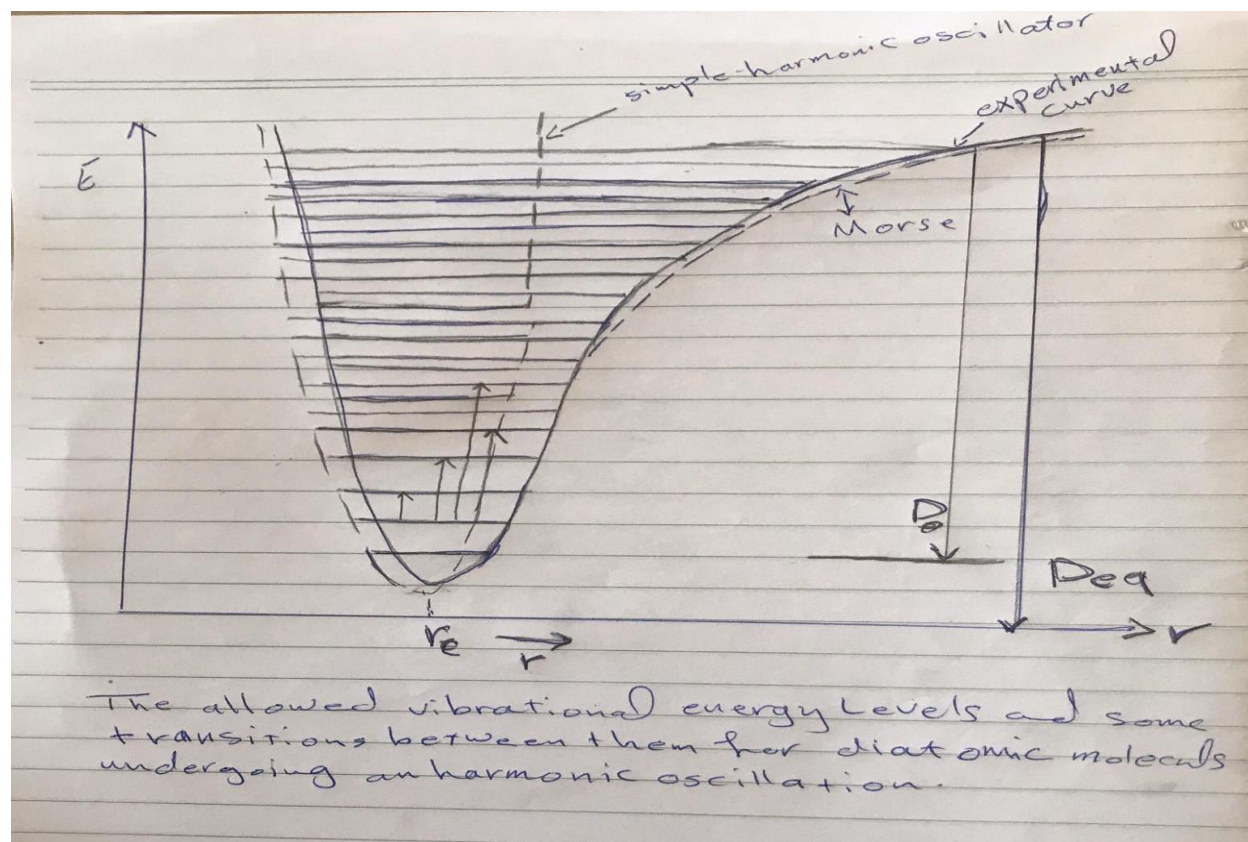 simple-harmonic oscillator
experimental
curve
E
Morse
Do
Deq
re
r
r
The allowed vibrational energy Levels and some
transitions between them for diatomic moleculs
undergoing anharmonic oscillation.